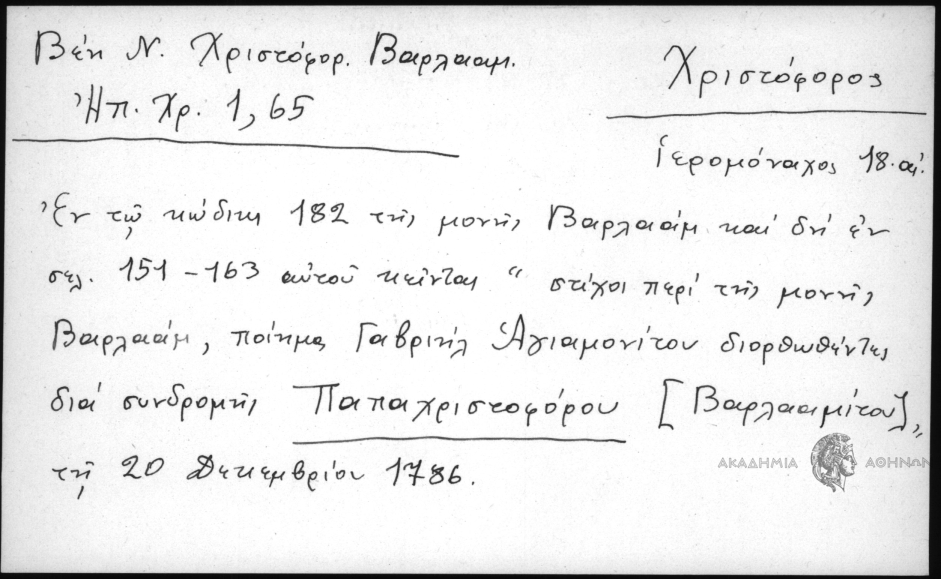 Βέη Ν. Χριστόφορ. Βαρλααμ.
Ἠπ. Χρ. 1, 65
Χριστόφορος
ἱερομόναχος 18. αἰ.
Ἐν τῷ κώδικι 182 τῆς μονῆς Βαρλαάμ καί δή ἐν
σελ. 151 - 163 αὐτοῦ κεῖνται " στίχοι περί τῆς μονῆς
Βαρλαάμ, ποίημα Γαβριήλ Ἁγιαμονίτου διορθωθέντες
διά συνδρομῆς Παπαχριστοφόρου [Βαρλααμίτου]"
τῇ 20 Δεκεμβρίου 1786.
ΑΚΑΔΗΜΙΑ ΑΘΗΝΩΝ